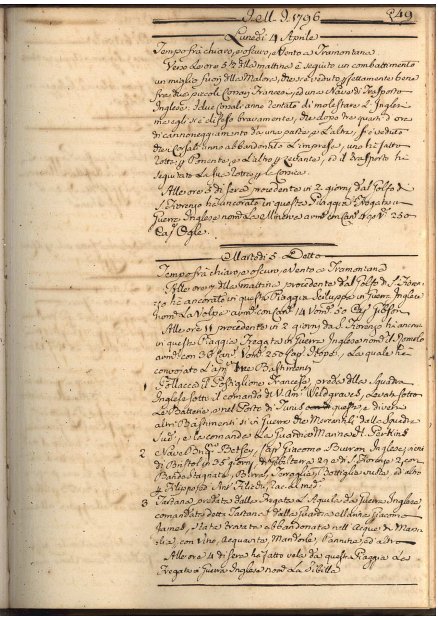 Dell. 9. 1796 249
Lunedi 4 Aprile
Tempo frà chiaro, e oscuro, e Vento a Tramontana
Verso le ore 5 1/2 della mattina è seguito un combattimento
un miglio fuori della Malora, che si è veduto perfettamente bene
fra due piccoli Corsari Francesi, ed una Nave di Trasporto
Inglese. I due Corsali anno tentato di molestare l' Inglese
ma egli si è difeso bravamente, che dopo tre quarti d' ora
di cannoneggiamento da una parte, e l' altra, si è veduto
che i Corsali anno abbandonato l' impresa, uno hà fatto
rotta p Ponente, e l' altro p Levante, ed il Trasporto hà
seguitato la sua rotta p la Corsica
Alle ore 5 di sera procedente in 2 giorni dal Golfo di
S. Fiorenzo hà ancorato in questa Piaggia Fregata in
Guerra Inglese nom.a La Minerva arm.a con Can. 40 Vi 250
Cap. Ogle
Martedi 5 Detto
Tempo frà chiaro, e oscuro, e Vento a Tramontana
Alle ore della mattina procedente dal Golfo di S. Fioren-
zo hà ancorato in questa Piaggia Sciluppa in Guerra Inglese
nom.a La Volpe arm. con Can. 14 Vom. 50 Cap. Gibson
Alle ore 11 procedente in 2 giorni da S. Fiorenzo hà ancora.
in questa Piaggia Fregata in Guerra Inglese nom.
arm. con 36 Can. Vom. 250 Cap. Hope, La quale hà
convojato L' app. tre Bastimenti
1 Pollacca Francese, preda della Squadra
Inglese sotto il comando di V. Am. Waldgraves, Levata sotto
le Batterie nel Porto di Tunis questa, e diversi
altri Bastimenti sì in Guerra che Mercantili dalla Squadra
Sud., e la comanda La Guardia Marina H. Parkins
2 Nave Betsey, Cap. Giacomo Burron Inglese, vieni
di Bristol in 25 giorni, di Gibilterra 29 e di S. Fiorenzo 2, con
Banda stagnata, Birra, Terraglia, Bottiglie vuote, ed altro
3 Tartana predata dalla Fregata L' Aquila da Guerra Inglese
comandata detta Tartana dalla Guardia Marina Giacomo
James, stata trovata abbandonata nell' Acque di Marsi-
lia, con Vino, Acquavite, Mandorle, Pannina, ed altro
Alle ore 4 di sera hà fatto vela da questa Piaggia La
Fregata in Guerra Inglese nom.a La Sibilla